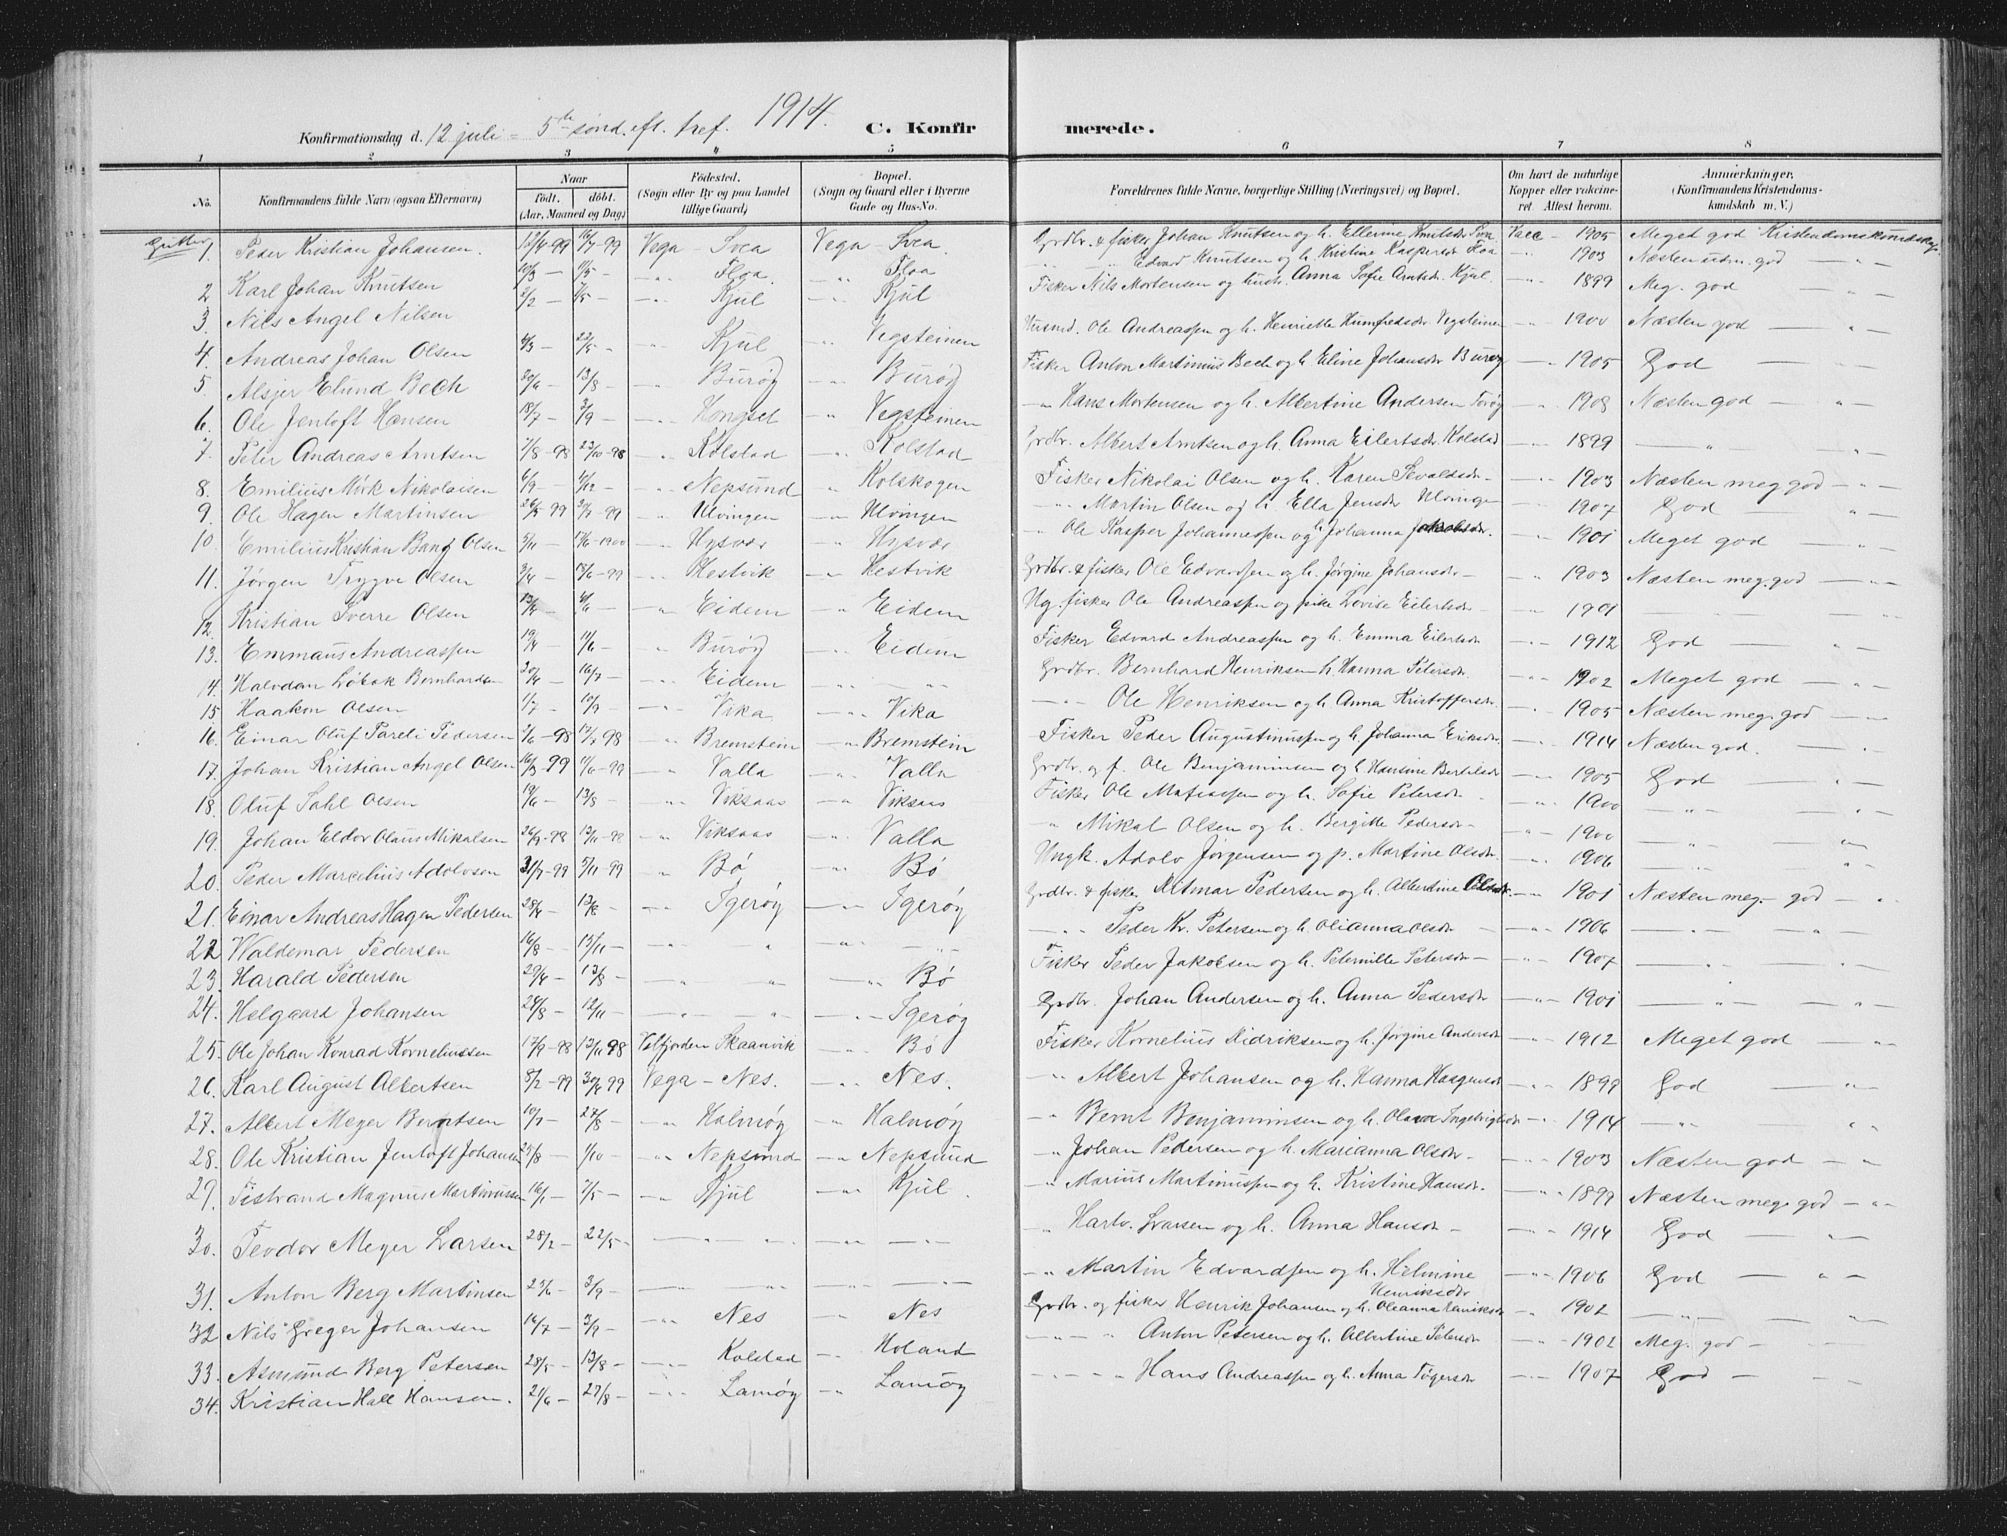 Konfirmationsdag d. 12 juli - 5te sønd. eft. tref. 1914. C. Konfirmerede.
1 2 3 4 5 6 7 8
No. Konfirmandens fulde Navn (ogsaa Efternavn) Naar født. døbt. (Aar, Maaned og Dag) Fødested. (Sogn eller By og paa Landet tillige Gaard) Bopæl. (Sogn og Gaard eller i Byerne Gade og Hus-No. Forældrenes fulde Navne, borgerlige Stilling (Næringsvei) og Bopæl. Om havt de naturlige Kopper eller vaccineret. Attest herom. Anmærkninger. (Konfirmandens Kristendomskundskab m. V.)
Gutter
1. Peder Kristian Johansen 12/4-99 16/7-99 Vega - Svea Vega - Svea Grdbr. & fisker Johan Knutsen og h. Ellerine Knutsdr Vacc - 1905 Meget god Kristendomskundskap
2 Karl Johan Knutsen 10/3 - 1/5 - -"- Floa -"- Floa " " Edvard Knutsen og h. Kristine Kaspersdr Floa -"- 1903 Næsten udm. god -"-
3. Nils Angel Nilsen 2/2 - 7/5 - -"- Kjul -"- Kjul Fisker Nils Mortensen og hustr. Anna Sofie Arntsdr. Kjul -"- 1899 Meg. god -"-
4. Andreas Johan Olsen 4/3 - 22/5 - -"- Kjul -"- Vegsteinen Husmd. Ole Andreassen og h. Henriette Humfredsdr. Vegsteinen -"- 1900 Næsten god -"-
5 Alsjer Elund Bech 20/6 - 13/8 - -"- Burøy -"- Burøy Fisker Anton Martinius Bech og h Eline Johansdr Burøy -"- 1905 God -"-
6. Ole Jentoft Hansen 18/7 - 3/9 - -"- Kongset -"- Vegsteinen -"- Hans Mortensen og h. Albertine Andersen -"- 1908 Næsten god -"-
7. Peter Andreas Arntsen 7/8-98 23/10-98 -"- Kolstad -"- Kolstad Grdbr. Albert Arntsen og h. Anna Eilertsdr. Kolstad -"- 1899 -"-
8. Emilius Mørk Nikolaisen 6/9 - 4/12 - -"- Nepsund -"- Kolskogen Fisker Nikolai Olsen og h. Karen Sevaldsdr. -"- 1903 Næsten meg. god -"-
9. Ole Hagen Martinsen 26/5 99 -"- Ulvingen -"- Ulvingen -"- Martin Olsen og h. Ella Jensdr Ulvingen -"- 1907 God -"-
10. Emilius Kristian Bang Olsen 5/11 - 17/6-1900 -"- Hysvær -"- Hysvær -"- Ole Kasper Johannessen og h. Johanna Jakobsdr. -"- 1901 Meget god -"-
11. Jørgen Trygve Olsen 3/4 - 18/6-99 -"- Hestvik -"- Hestvik Grdbr. & fisker Ole Edvardsen og h. Jørgine Johansdr - -"- 1903 Næsten meg. god -"-
12. Kristian Sverre Olsen 13/4 - 4/6 - -"- Eidem -"- Eidem Ug. fisker Ole Andreassen og pike Lovise Eilertsdr - -"- 1901 -"-
13. Emmaus Andreassen 19/4 - 11/6 - -"- Burøy -"- Eidem Fisker Edvard Andreassen og h. Emma Eilertsdr -"- 1912 God -"-
14. Halvdan Løbak Bernhardsen 20/4 - 16/7 - -"- Eidem -"- -"- Grdbr. Bernhard Henriksen h. Hanna Petersdr. -"- 1902 Meget god -"-
15 Haakon Olsen 1/7 - 10/9 - -"- Vika -"- Vika -"- Ole Henriksen og h. Anna Kristoffersdr. -"- 1905 Næsten meg. god -"-
16. Einar Oluf Pareli Pedersen 2/6-98 17/7 98 -"- Bremstein -"- Bremstein Fisker Peder Augustinussen og h. Johanna Eriksdr. -"- 1914 Næsten god. -"-
17. Johan Kristian Angel Olsen 16/3-99 11/6-99 -"- Valla -"- Valla Grdbr. og f. Ole Benjaminsen og h Hansine Bertelsdr -"- 1905 God -"-
18. Oluf Sahl Olsen 19/6 - 13/8 - -"- Viksaas -"- Viksaas Fisker Ole Matiassen og h. Sofie Petersdr - -"- 1900 -"-
19. Johan Eldor Olaus Mikalsen 26/9-98 13/11-98 -"- Viksaas -"- Valla -"- Mikal Olsen og h. Bergitte Pedersdr - -"- 1900 -"-
20. Peder Marcelius Adolvsen 31/7-99 5/11-99 -"- Bø -"- Bø Ungk. Adolv Jørgensen og p. Martine Olsdr. -"- 1906 -"-
21. Einar Andreas Hagen Pedersen 28/4 - 13/8 - -"- Igerøy -"- Igerøy Grdbr. & fisker Ditmar Pedersen og h. Albertine Olsdr. -"- 1901 Næsten meg. god -"-
22 Waldemar Pedersen 16/8 - 13/11 - -"- " -"- -"- Peder Kr. Petersen og h. Olianna Olsdr -"- 1906 -"-
23. Harald Pedersen 29/6 - 13/8 - -"- " -"- Bø Fisker Peder Jakobsen og h. Peternille Petersdr - -"- 1907 -"-
24. Helgaard Johansen 24/8 - 12/11 - -"- " -"- Igerøy Grdbr. Johan Andersen og h. Anna Pedersdr -"- 1901 -"-
25. Ole Johan Konrad Kornelinssen 17/9-98 13/11 98 Velfjorden Skaanvik -"- Bø Fisker Kornelius Didriksen og h. Jørgine Andersdr -"- 1912 Meget god -"-
26. Karl August Albertsen 8/2-99 30/4 99 Vega - Nes. -"- Nes. -"- Albert Johansen og h. Hanna Haagensdr -"- 1899 God -"-
27. Albert Meyer Berntsen 10/7 - 27/8 - -"- Halmøy -"- Halmøy -"- Bernt Benjaminsen og h. Olava Ingebrigtsdr -"- 1914 -"-
28. Ole Kristian Jentoft Johansen 23/8 - 1/10 - -"- Nepsund -"- Nepsund -"- Johan Pedersen og h. Marianna Olsdr - -"- 1903 Næsten god -"-
29. Tistrand Magnus Martinussen 16/1 - 7/5 - -"- Kjul -"- Kjul -"- Marius Martinussen og h. Kristine Hansdr. -"- 1899 Næsten meg. god -"-
30. Teodor Meyer Larsen 28/2 - 22/5 - -"- -"- -"- -"- Hartv. Larsen og h. Anna Hansdr - -"- 1914 God -"-
31. Anton Berg Martinsen 25/6 - 3/9 - -"- " -"- -"- -"- Martin Edvardsen og h. Helmine Henriksdr -"- 1906 God -"-
32 Nils Greger Johansen 14/7 - 3/9 - -"- Nes -"- Nes Grdbr. og fisker Henrik Johansen og h. Oleanna Henriksdr -"- 1902 -"-
33. Asmund Berg Petersen 28/5 - 13/8 - -"- Kolstad -"- Holand -"- -"- Anton Petersen og h. Albertine Petersdr -"- 1902 Meg. god - -"-
34. Kristian Hall Hansen. 21/6 - 27/8 - -"- Lamøy -"- Lamøy -"- -"- Hans Andreassen og h. Anna Tøgersdr -"- 1907 God - -"-